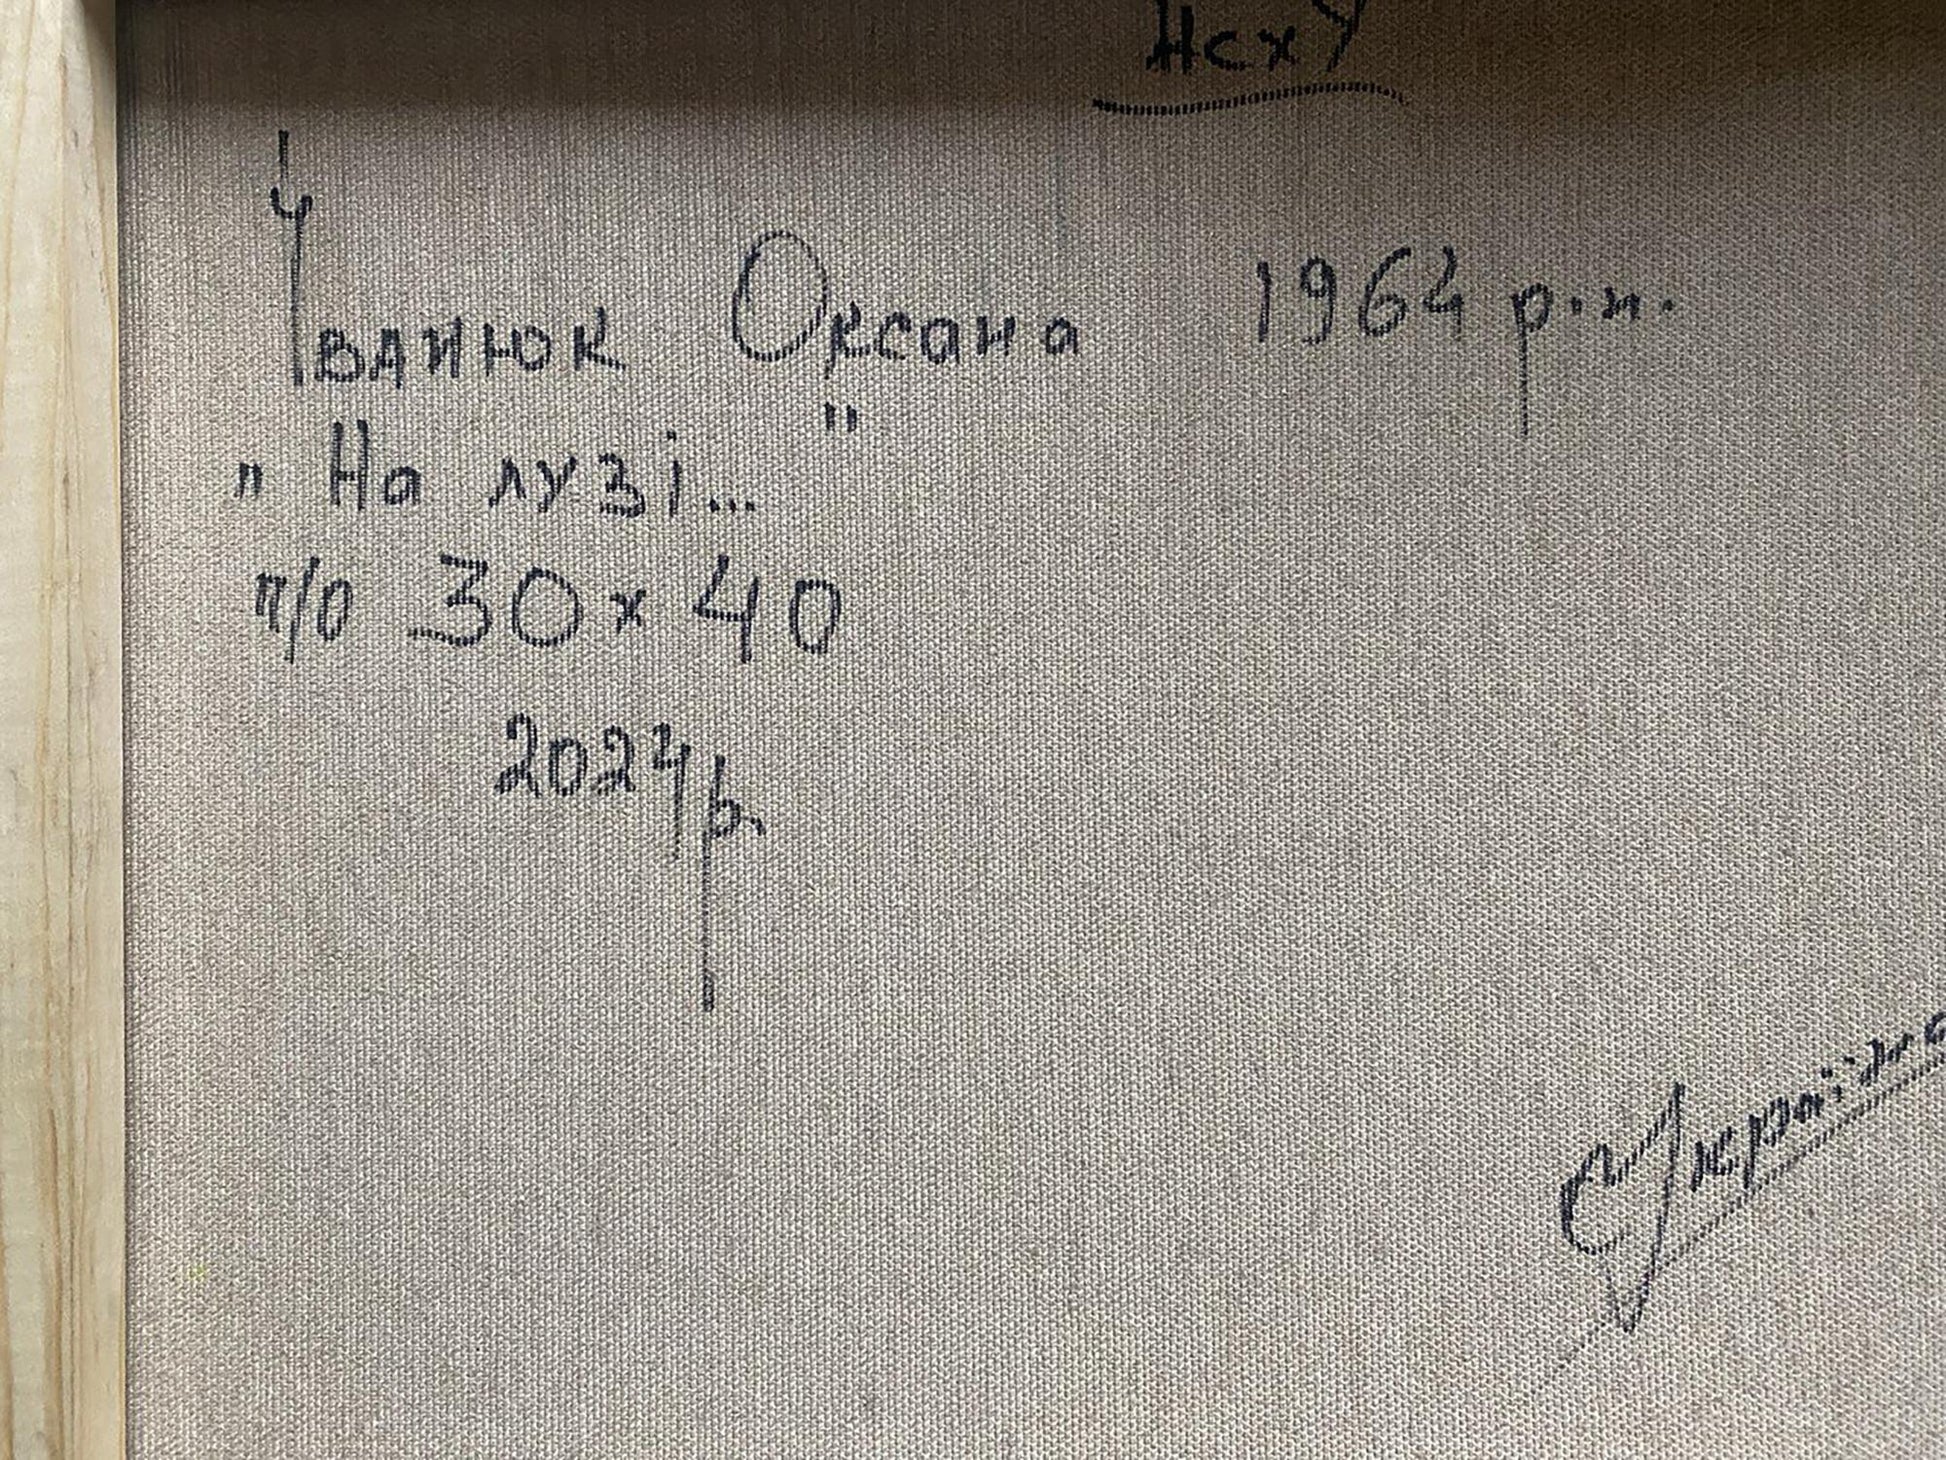 НСХУ
Іванюк Оксана 1964 р.н.
„На лузі..."
п/о 30х40
2024р.
Україна